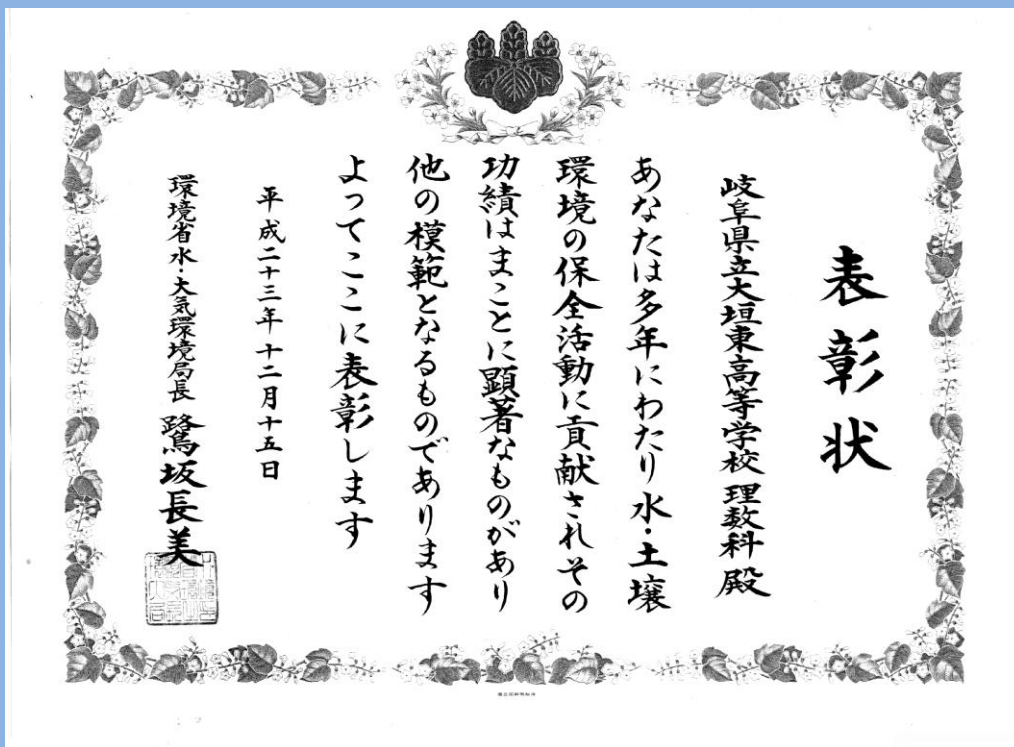 表彰状
岐阜県立大垣東高等学校 理数科 殿
あなたは多年にわたり水・土壌
環境の保全活動に貢献されその
功績はまことに顕著なものがあり
他の模範となるものであります
よってここに表彰します
平成二十三年十二月十五日
環境省水・大気環境局長 鷺坂長美